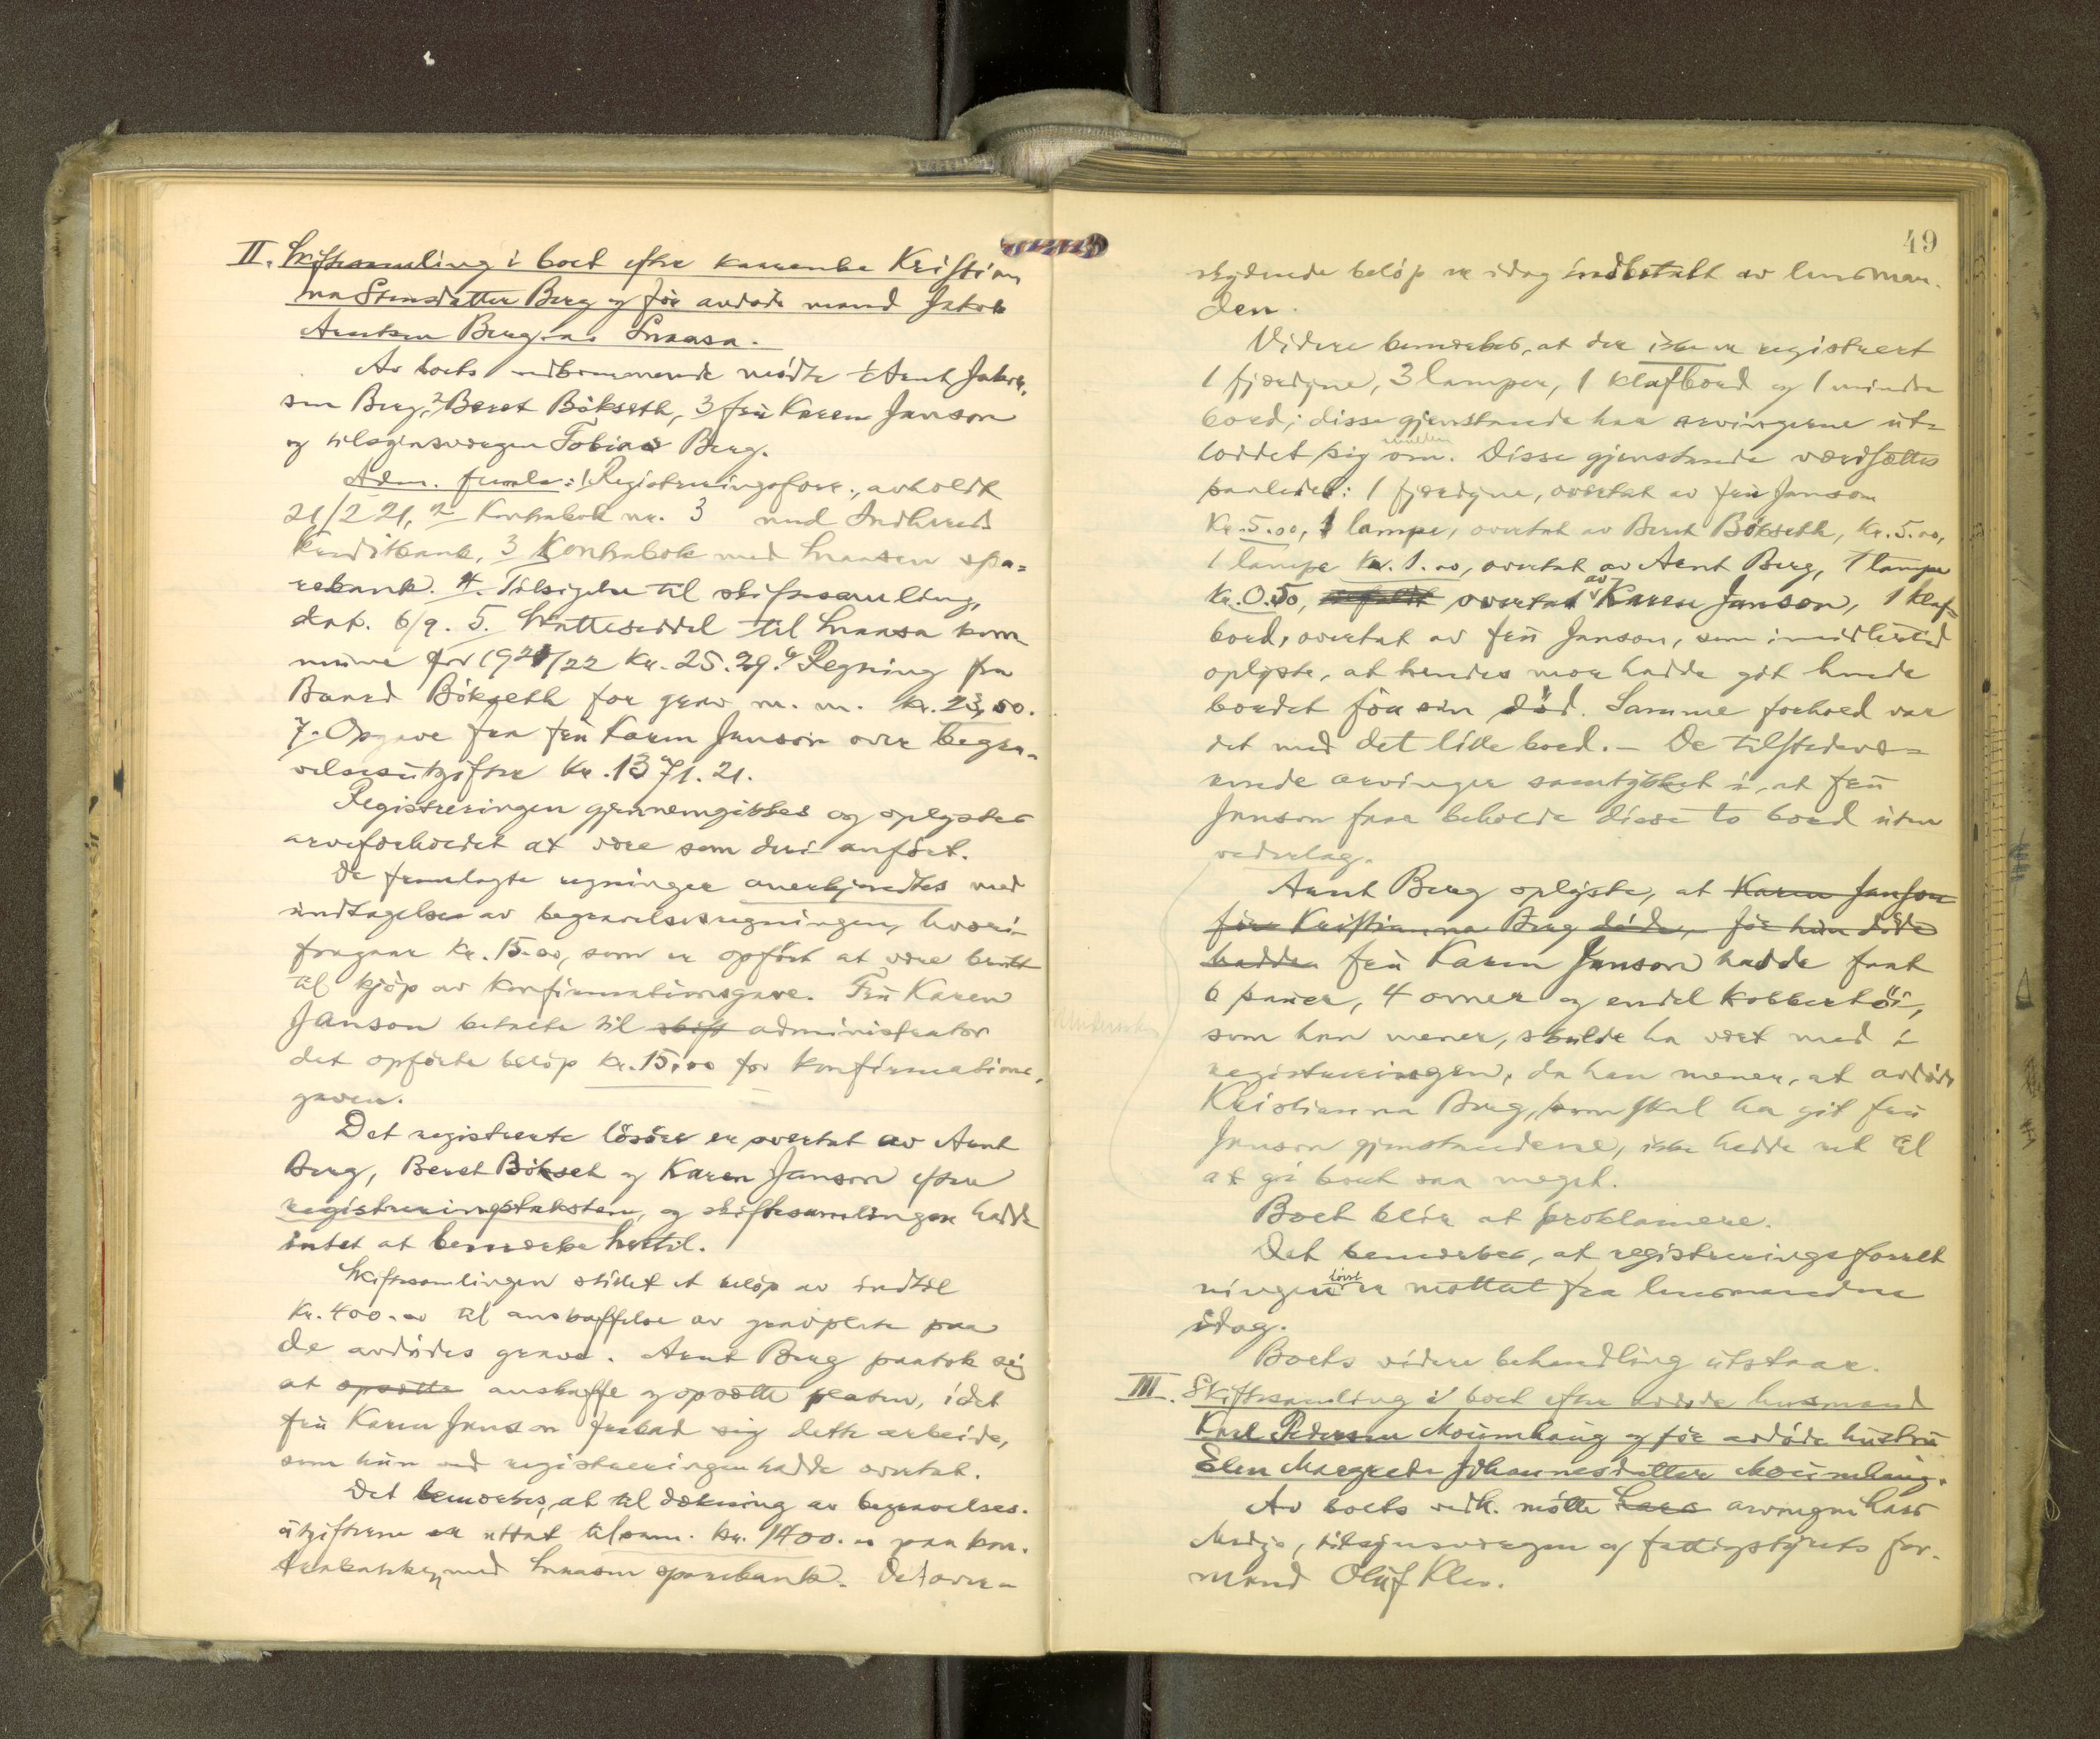 II. Skiftesamling i boet efter kaarenke Kristian
na Stensdatter Berg og før avdøde mand Jakob
Arntsen Berg, Snaasa.
Av boets vedkommende mødte 1 Arnt Jakob-
sen Berg, 2 Beret Bökseth, 3 fru Karen Janson
og tilsynsvergen Tobias Berg.
Adm. freml.: 1 Registreringsforr., avholdt
21/2 21, 2 Kontrabok nr. 3 med Indherreds
Kreditbank, 3 Kontrabok med Snaasen spa=
rebank. 4. Tilsigelse til skiftesamling,
dat. 6/9. 5. Skatteseddel til Snaasa kom
mune for 1921/22 kr. 25.29. 6 Regning fra
Baard Bökseth for grav m. m. kr. 23,50.
7. Opgave fra fru Karen Janson over begra-
velsesutgifter kr. 1371.21.
Registreringen gjennemgikkes og oplystes
arveforholdet at være som deri anført.
De fremlagte regninger anerkjendtes med
undtagelse av begravelsesregningen, hvori
fragaar kr. 15.00, som er opført at være brukt
til kjøp av konfirmationsgave. Fru Karen
Janson betalte til skift administrator
det opførte beløp kr. 15,00 for konfirmations-
gaven.
Det registrerte løsøre er overtat av Arnt
Berg, Beret Bökset og Karen Janson efter
registreringstaksten, og skiftesamlingen hadde
intet at bemerke hertil.
Skiftesamlingen stillet et beløp av indtil
kr. 400.00 til anskaffelse av gravplate paa
de avdødes grave. Arnt Berg paatok sig
at opsætte anskaffe og opsætte platen, idet
fru Karen Janson frabad sig dette arbeide,
som hun ved registreringen hadde overtat.
Det bemerkes, at til dækning av begravelses-
utgifterne er uttat tilsam. kr. 1400.00 paa kon-
trabok med Snaasen sparebank. Det over-
49
skydende beløp er idag indbetalt av lensman-
den.
Videre bemerkes, at der ikke er registrert
1 fjærdyne, 3 lamper, 1 klafbord og 1 mindre
bord; disse gjenstande har arvingerne ut-
loddet sig imellem om. Disse gjenstande værdsættes
saaledes: 1 fjærdyne, overtat av fru Janson
Kr. 5.00, 1 lampe, overtat av Beret Bökseth, Kr. 5.00,
1 lampe kr. 1.00, overtat av Arnt Berg, 1 lampe
kr. 0.50, overtat av Karen Janson, 1 klaf-
bord, overtat av fru Janson, som imidlertid
oplyste, at hendes mor hadde git hende
bordet før sin død. Samme forhold var
det med det lille bord. – De tilstedevæ=
rende arvinger samtykket i, at fru
Janson faar beholde disse to bord uten
vederlag.
Arnt Berg oplyste, at Karen Janson
før Kristianna Berg døde, før hun døde
hadde fru Karen Janson hadde faat
6 sauer, 4 ovner og endel kobbertöi,
som han mener, skulde ha vært med i
registreringen, da han mener, at avdøde
Kristianna Berg, som skal ha git fru
Janson gjenstandene, ikke hadde ret til
at gi bort saa meget.
Boet blir at proklamere.
Det bemerkes, at registreringsforret
ningen først er mottat fra lensmanden
idag.
Boets videre behandling utstaar.
III. Skiftesamling i boet efter avdøde husmand
Karl Pedersen Moumhaug og før avdøde hustru
Elen Margrete Johannesdatter Moumhaug.
Av boets vedk. møtte Lars arvingen Lars
Medjo, tilsynsvergen og fattigstyrets for-
mand Oluf Klev.